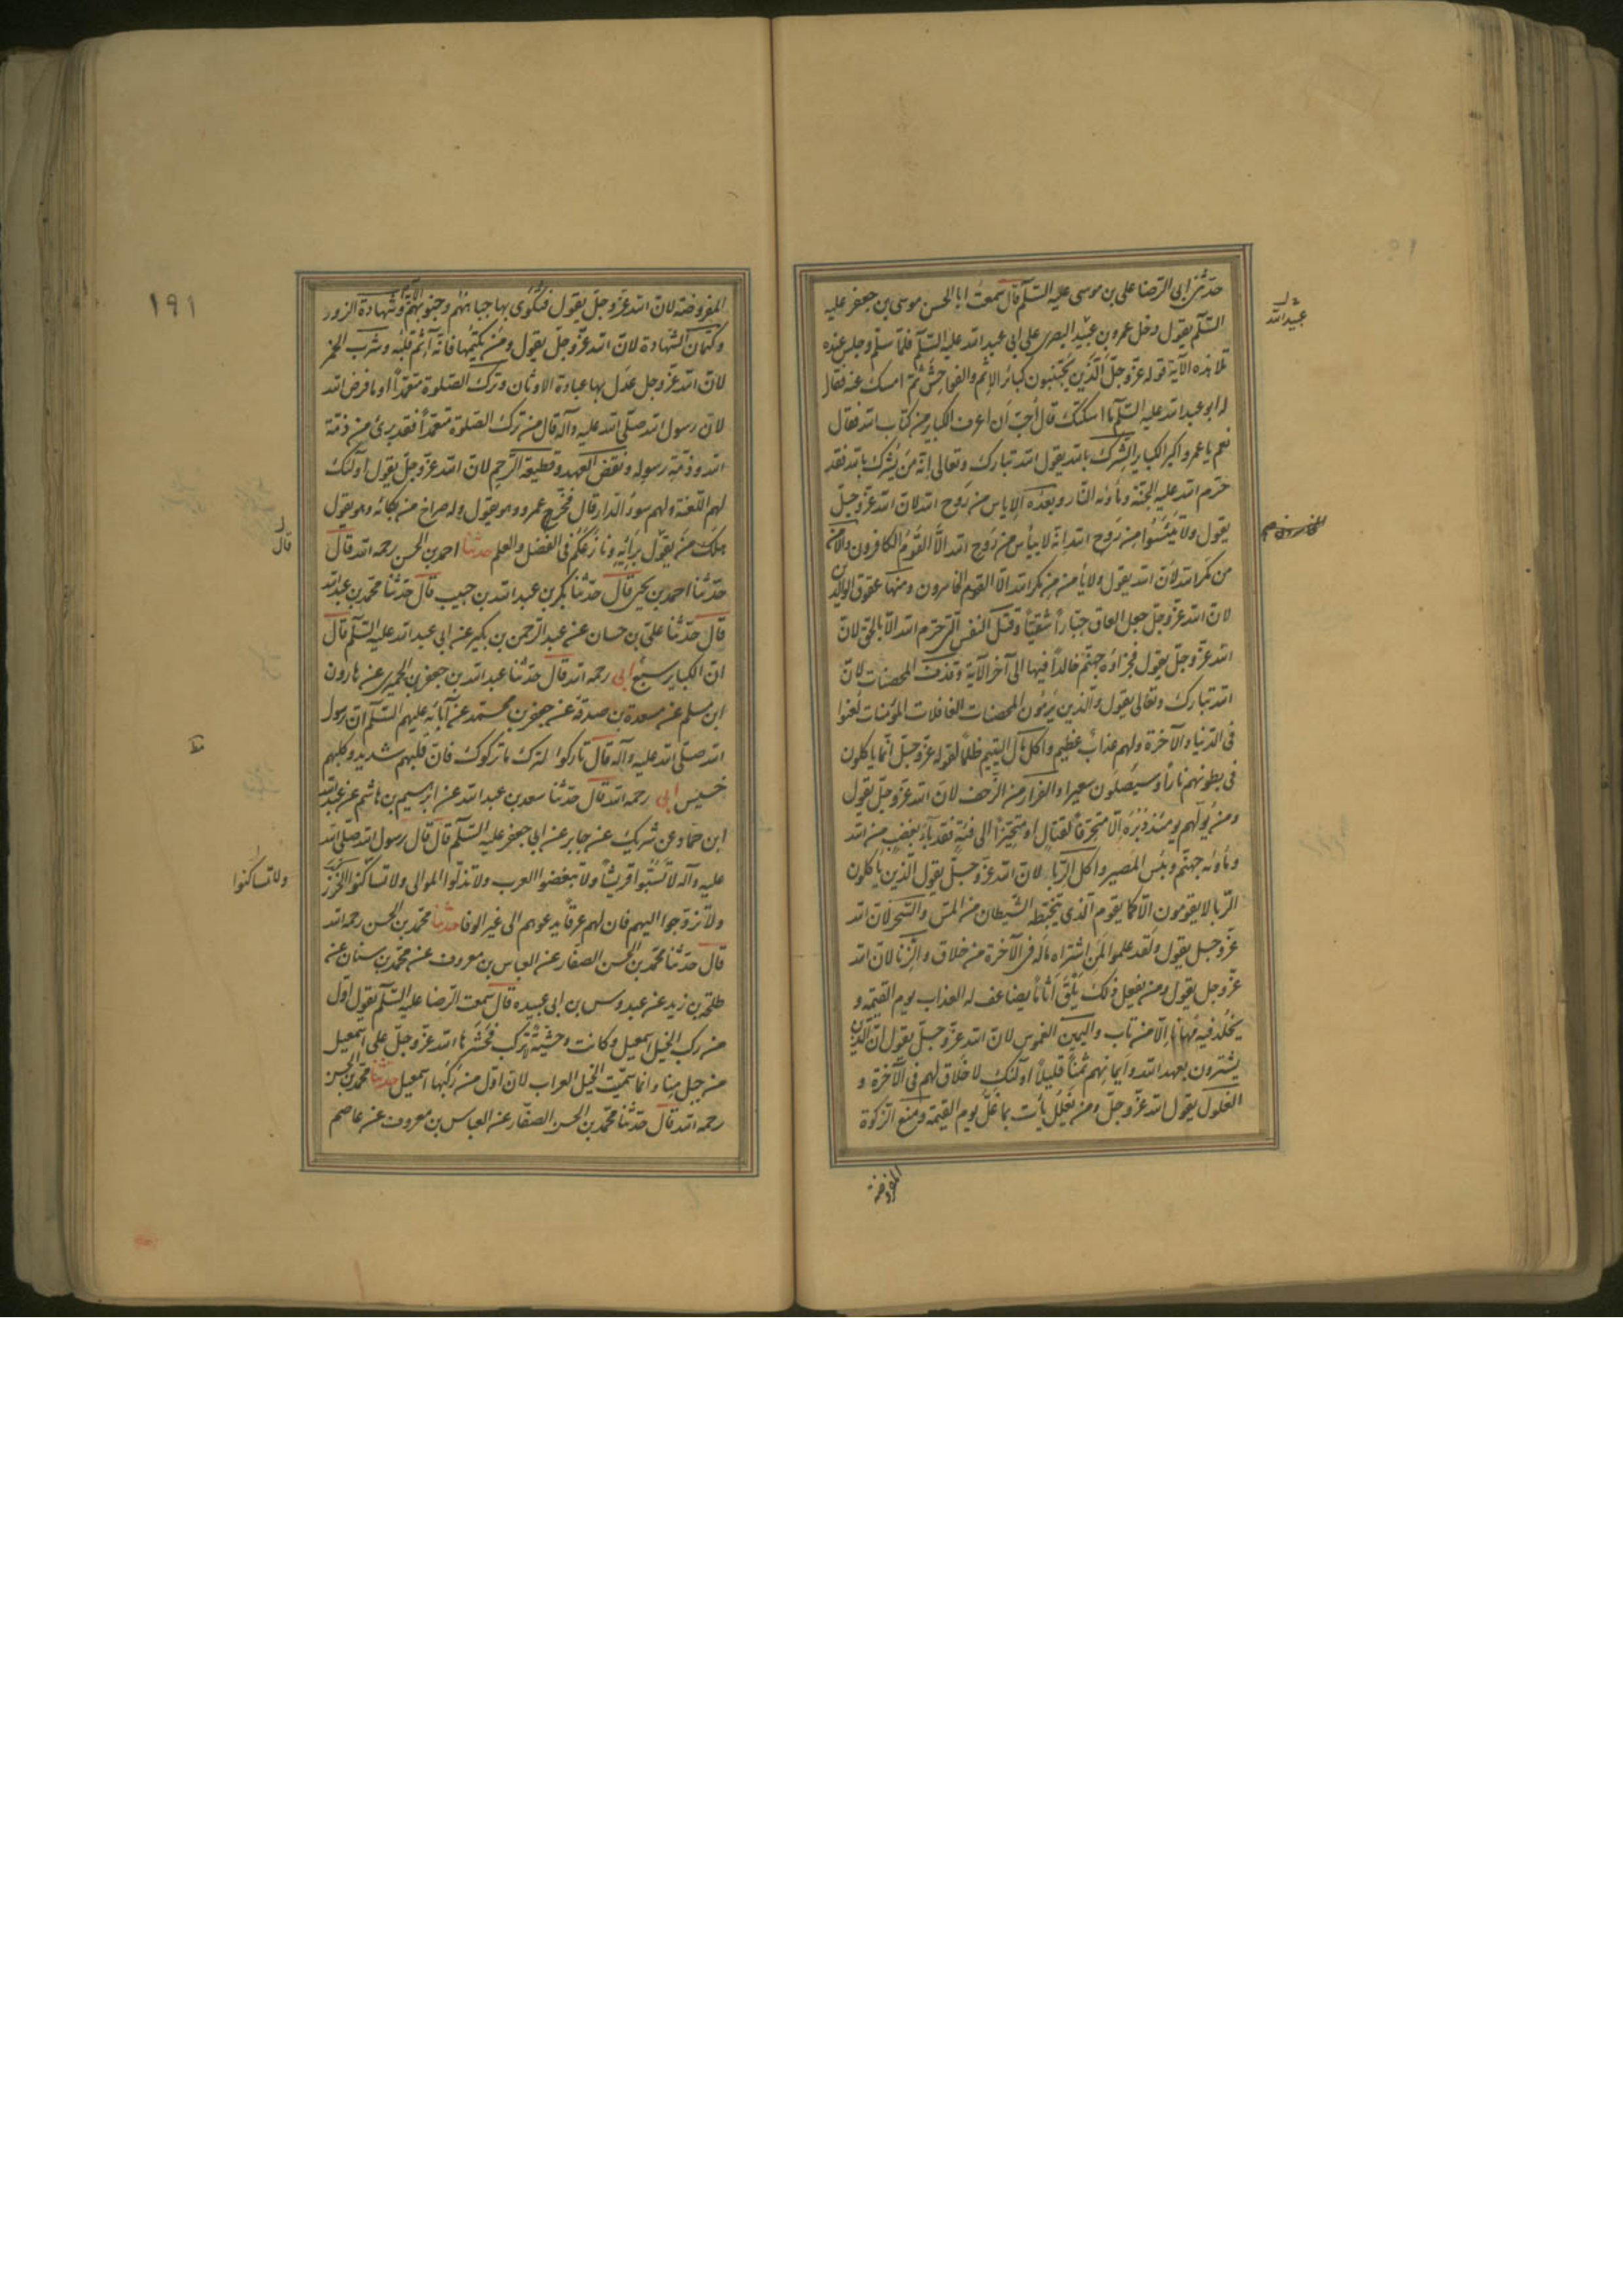 حدثنی ابی الرضا علی بن موسی علیه السلم قال سمعت ابا الحسن موسی بن جعفر علیه
السلم یقول دخل عمرو بن عبید البصری علی ابی عبد الله علیه السلم فلما سلم و جلس عنده
تلا هذه الآیة قوله عز و جل الذین یجتنبون کبائر الاثم و الفواحش ثم امسک عنه فقال
له ابو عبد الله علیه السلم ما اسکتک قال احب ان اعرف الکبایر من کتاب الله فقال
نعم یا عمرو اکبر الکبایر الشرک بالله یقول الله تبارک و تعالی انه من یشرک بالله فقد
حرم الله علیه الجنة و مأویه النار و بعده الایاس من روح الله لان الله عز و جل
یقول و لا تیئسوا من روح الله انه لا ییأس من روح الله الا القوم الکافرون و الامن
من مکر الله لان الله یقول و لا یأمن من مکر الله الا القوم الخاسرون و منها عقوق الوالدین
لان الله عز و جل جعل العاق جبارا شقیا و قتل النفس التی حرم الله الا بالحق لان
الله عز و جل یقول فجزاؤه جهنم خالدا فیها الی آخر الآیة و قذف المحصنات لان
الله تبارک و تعالی یقول و الذین یرمون المحصنات الغافلات المؤمنات لعنوا
فی الدنیا و الآخرة و لهم عذاب عظیم و اکل مال الیتیم ظلما لقوله عز و جل انما یاکلون
فی بطونهم نارا و سیصلون سعیرا و الفرار من الزحف لان الله عز و جل یقول
و من یولهم یومئذ دبره الا متحرفا لقتال او متحیزا الی فئة فقد باء بغضب من الله
و مأویه جهنم و بئس المصیر و اکل الربا لان الله عز و جل یقول الذین یاکلون
الربا لا یقومون الا کما یقوم الذی یتخبطه الشیطان من المس و السحر لان الله
عز و جل یقول و لقد علموا لمن اشتراه ما له فی الآخرة من خلاق و الزنا لان الله
عز و جل یقول و من یفعل ذلک یلق اثاما یضاعف له العذاب یوم القیمة و
یخلد فیه مهانا الا من تاب و الیمین الغموس لان الله عز و جل یقول ان الذین
یشترون بعهد الله و ایمانهم ثمنا قلیلا اولئک لا خلاق لهم فی الآخرة و
الغلول یقول الله عز و جل و من یغلل یأت بما غل یوم القیمة و منع الزکوة
المفروضة
عبید الله
١٩١
المفروضة لان الله عز و جل یقول فتکوی بها جباههم و جنوبهم و شهادة الزور
و کتمان الشهادة لان الله عز و جل یقول و من یکتمها فانه آثم قلبه و شرب الخمر
لان الله عز و جل عدل بها عبادة الاوثان و ترک الصلوة متعمدا او ما فرض الله
لان رسول الله صلی الله علیه و آله قال من ترک الصلوة متعمدا فقد برئ من ذمة
الله و ذمة رسوله و نقض العهد و قطیعة الرحم لان الله عز و جل یقول اولئک
لهم اللعنة و لهم سوء الدار قال فخرج عمرو و هو یقول و له صراخ من بکائه و هو یقول
هلک من یقول برأیه و نازعکم فی الفضل و العلم حدثنا احمد بن الحسن رحمه الله قال
حدثنا احمد بن یحیی قال حدثنا بکر بن عبد الله بن حبیب قال حدثنا محمد بن عبد الله
قال حدثنا علی بن حسان عن عبد الرحمن بن بکیر عن ابی عبد الله علیه السلم قال
ان الکبایر سبع ابی رحمه الله قال حدثنا عبد الله بن جعفر الحمیری عن هارون
ابن مسلم عن مسعدة بن صدقة عن جعفر بن محمد عن آبائه علیهم السلم ان رسول
الله صلی الله علیه و آله قال تارکوا الترک ما ترکوک فان قلبهم شدید و کلبهم
خسیس ابی رحمه الله قال حدثنا سعد بن عبد الله عن ابرهیم بن هاشم عن عبد الله
ابن حماد عن شریک عن جابر عن ابی جعفر علیه السلم قال قال رسول الله صلی الله
علیه و آله لا تسبوا قریشا و لا تبغضوا العرب و لا تذلوا الموالی و لا تساکنوا الخوز
و لا تزوجوا الیهم فان لهم عرقا یدعوهم الی غیر الوفا حدثنا محمد بن الحسن رحمه الله
قال حدثنا محمد بن الحسن الصفار عن العباس بن معروف عن محمد بن سنان عن
طلحة بن زید عن عبدوس بن ابی عبیده قال سمعت الرضا علیه السلم یقول اول
من رکب الخیل اسمعیل و کانت وحشیة لا ترکب فحشرها الله عز و جل علی اسمعیل
من جبل منا و انما سمیت الخیل العراب لان اول من رکبها اسمعیل حدثنا محمد بن الحسن
رحمه الله قال حدثنا محمد بن الحسن الصفار عن العباس بن معروف عن عاصم
قال
و لا تساکنوا